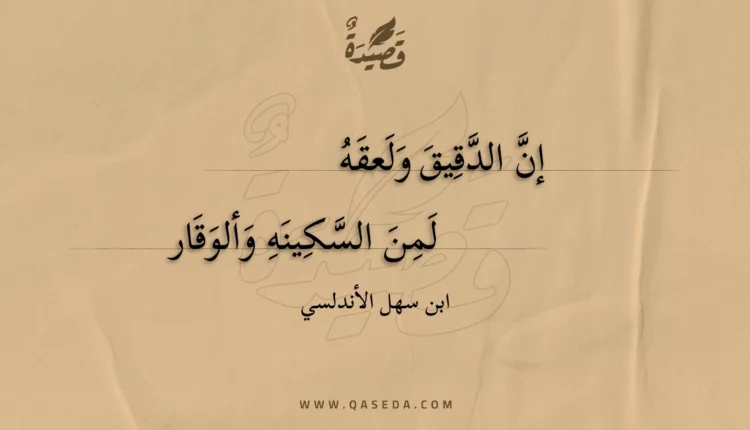 قَصِيدَةٌ
إنَّ الدَّقِيقَ وَلَعقَهُ
لَمِنَ السَّكِينَهِ وَألوَقَار
ابن سهل الأندلسي
WWW.QASEDA.COM